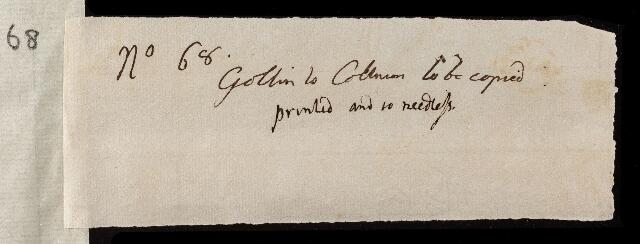 68
No 68.
Gollin to Colman to be copied
printed and so needless.